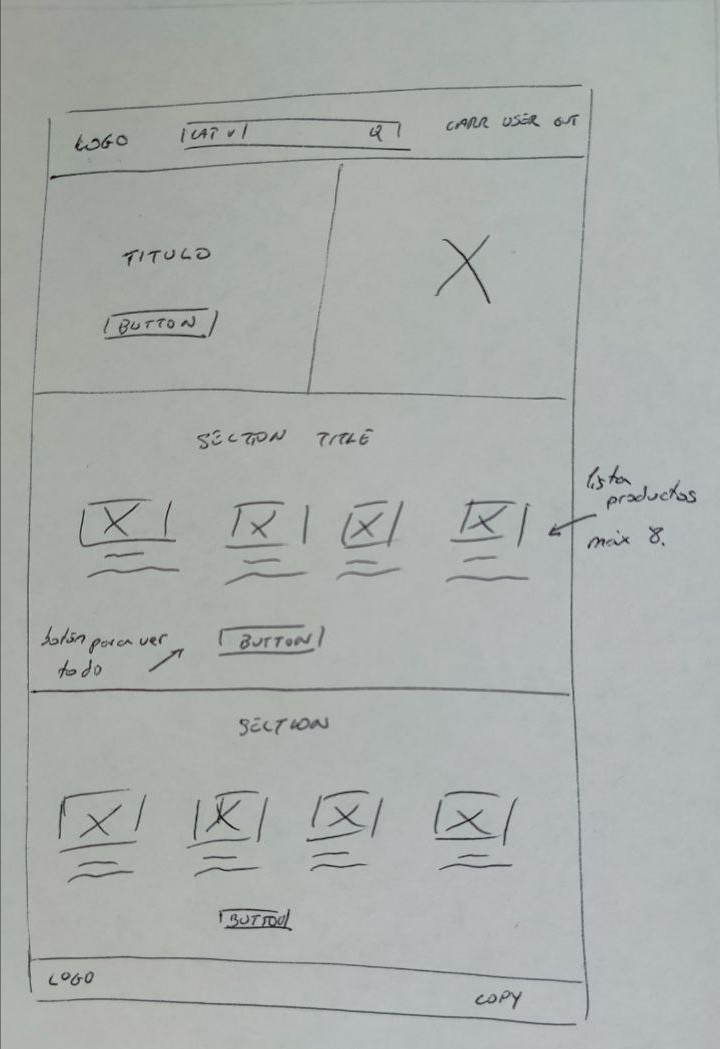 LOGO
CAT V
Q
CARR USER OUT
TITULO
BUTTON
SECTION TITLE
lista
productos
máx 8.
botón para ver
todo
BUTTON
SECTION
BUTTON
LOGO
COPY